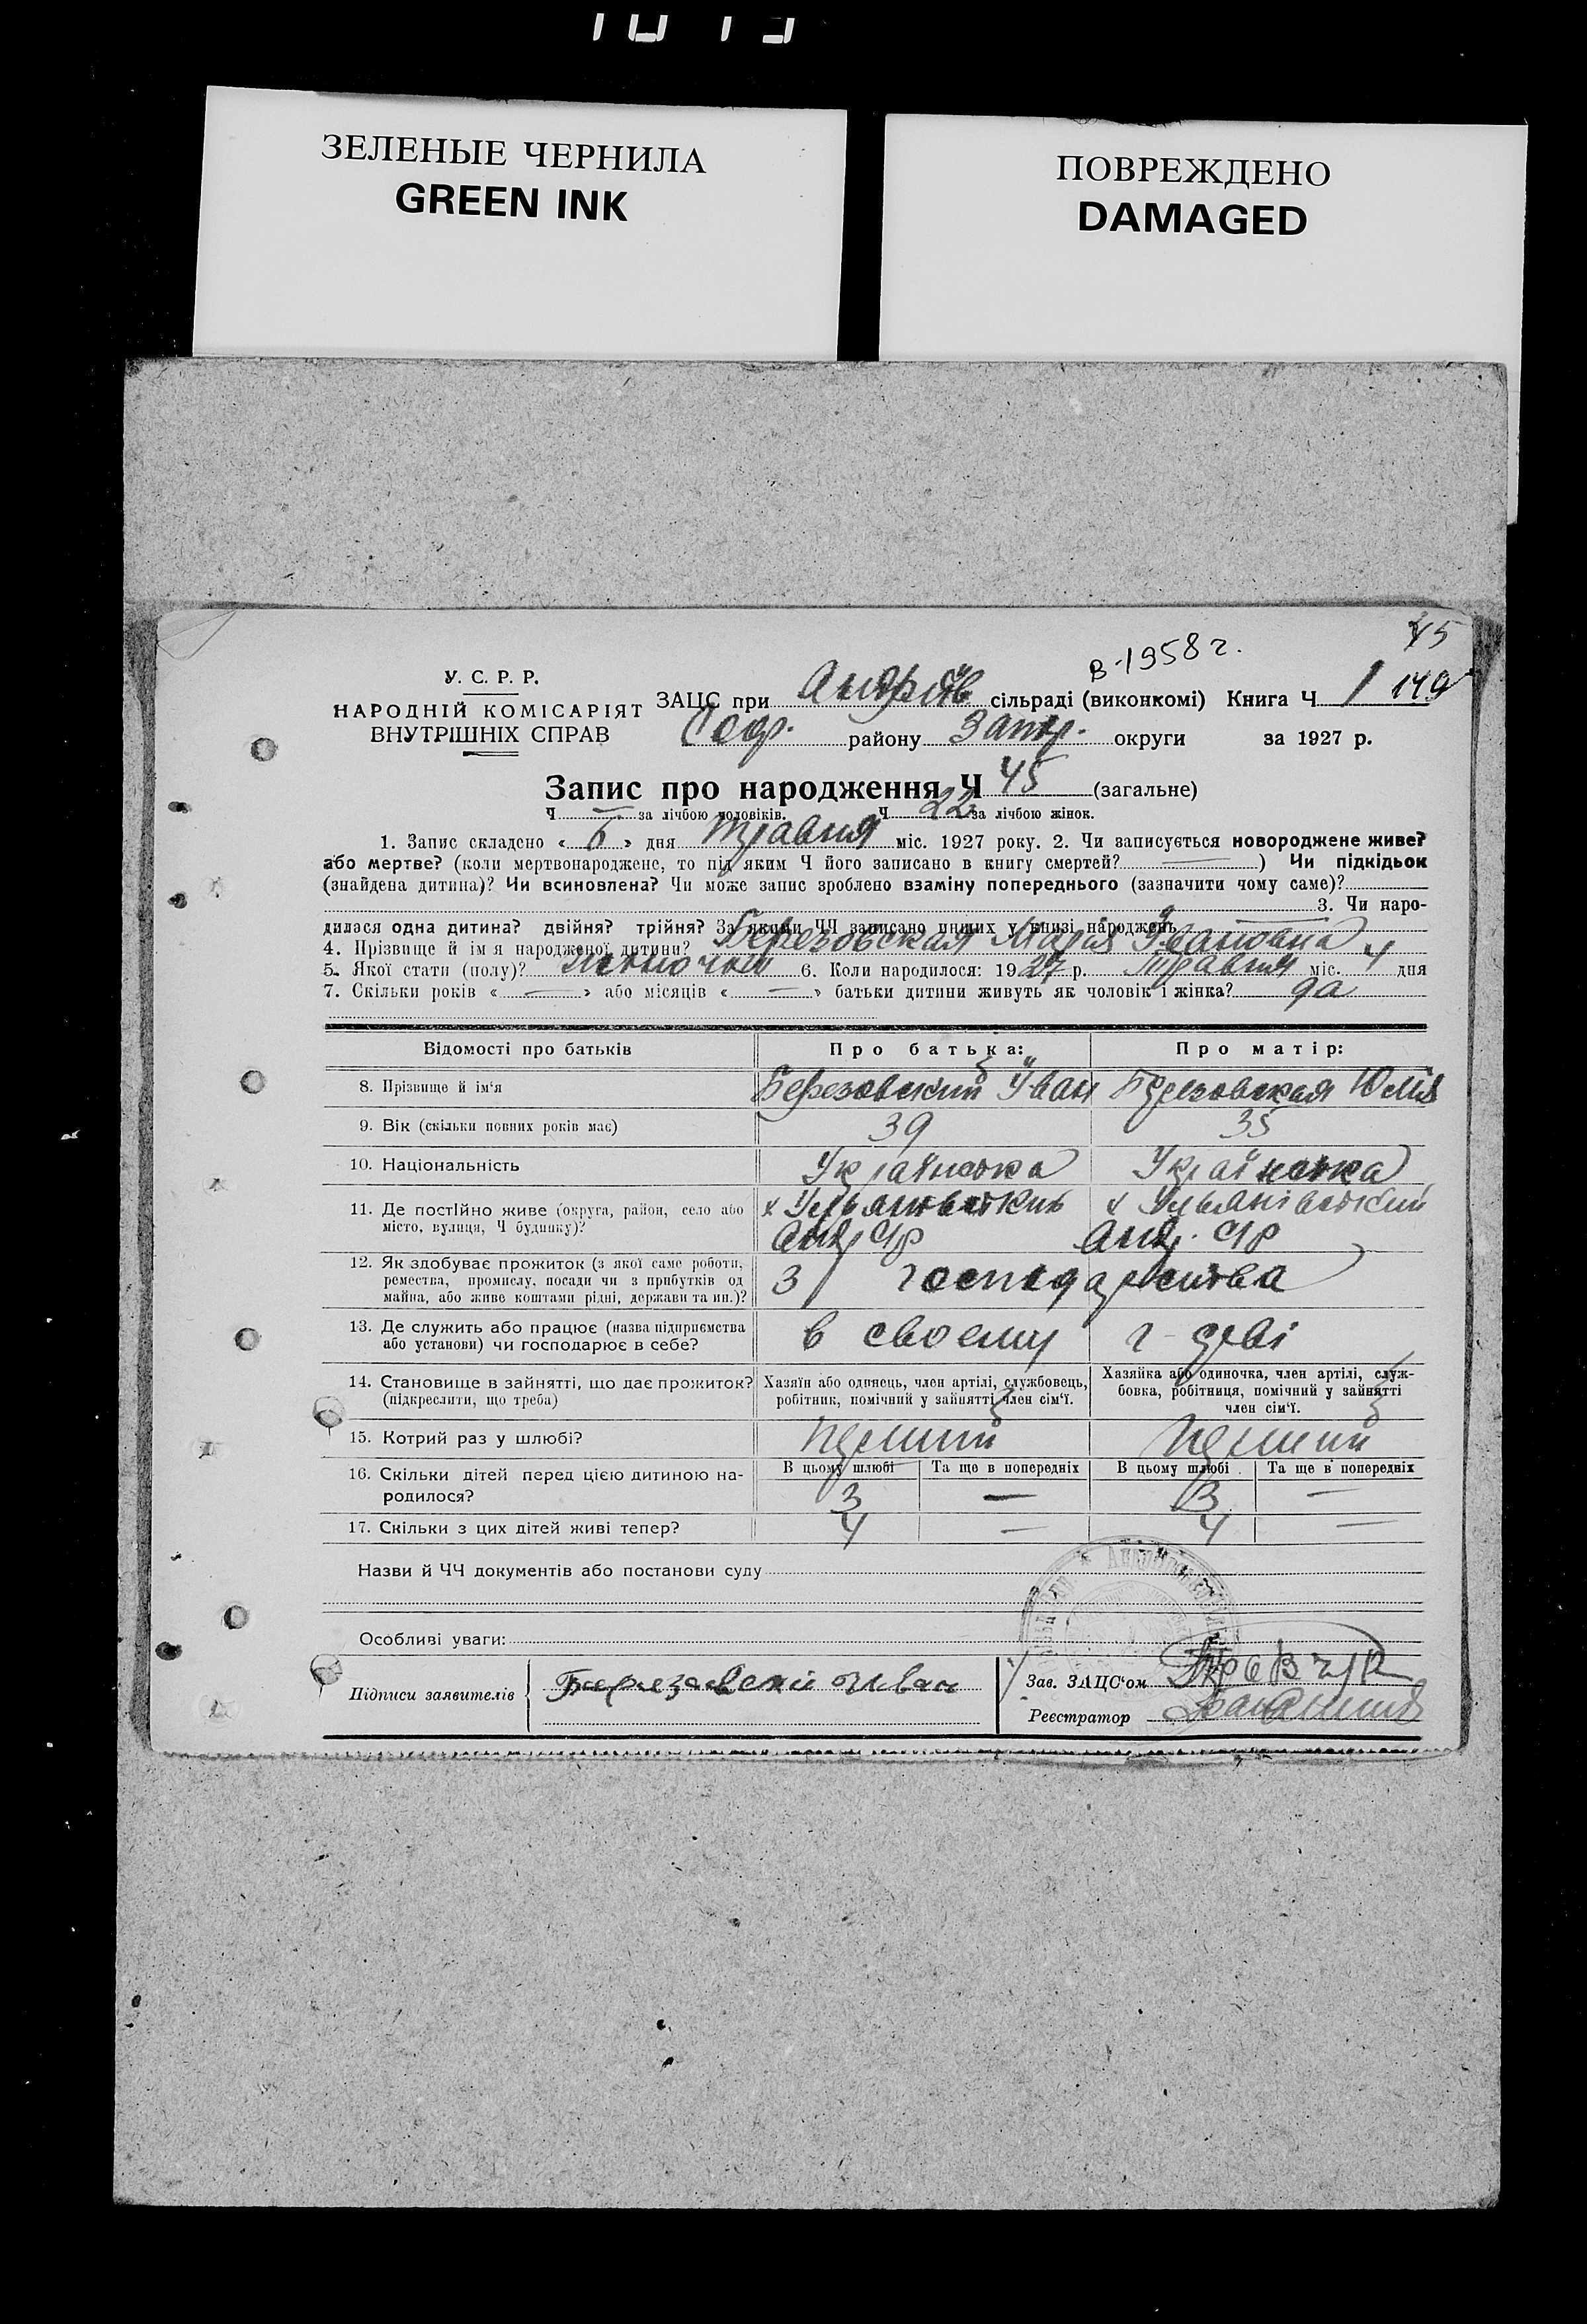 ЗЕЛЕНЫЕ ЧЕРНИЛА
GREEN INK
ПОВРЕЖДЕНО
DAMAGED
45
в-1958 г.
У. С. Р. Р.
НАРОДНІЙ КОМІСАРІЯТ
ВНУТРІШНІХ СПРАВ
ЗАЦС при Андріїв сільраді (виконкомі) Книга Ч 1 149
Соф. району Запор. округи за 1927 р.
Запис про народження Ч 45 (загальне)
Ч — за лічбою чоловіків. Ч 22 за лічбою жінок.
1. Запис складено « 6 » дня травня міс. 1927 року. 2. Чи записується новороджене живе?
або мертве? (коли мертвонароджене, то під яким Ч його записано в книгу смертей? — ) Чи підкідьок
(знайдена дитина)? Чи всиновлена? Чи може запис зроблено взаміну попереднього (зазначити чому саме)?
3. Чи наро-
дилася одна дитина? двійня? трійня? За якими ЧЧ записано инших у книзі народжень —
4. Прізвище й ім'я народженої дитини? Березовская Мария Ивановна
5. Якої стати (полу)? жіночий 6. Коли народилося: 1927 р. травня міс. 4 дня
7. Скільки років « — » або місяців « — » батьки дитини живуть як чоловік і жінка? да
Відомості про батьків Про батька: Про матір:
8. Прізвище й ім'я Березовский Иван Березовская Юлия
9. Вік (скільки повних років має) 39 35
10. Національність Українська Українська
11. Де постійно живе (округа, район, село або
місто, вулиця, Ч будинку)?
х Ульановский х Ульанівский
Андр С/р Андр. С/р
12. Як здобуває прожиток (з якої саме роботи,
ремества, промислу, посади чи з прибутків од
майна, або живе коштами рідні, держави та ин.)?
З господарства
13. Де служить або працює (назва підприємства
або установи) чи господарює в себе?
в своему г-стві
14. Становище в зайнятті, що дає прожиток?
(підкреслити, що треба)
Хазяїн або одинець, член артілі, службовець,
робітник, помічний у зайнятті член сім'ї.
Хазяйка або одиночка, член артілі, служ-
бовка, робітниця, помічний у зайнятті
член сім'ї.
15. Котрий раз у шлюбі? перший перший
16. Скільки дітей перед цією дитиною на-
родилося?
В цьому шлюбі Та ще в попередніх В цьому шлюбі Та ще в попередніх
3 — 3 —
17. Скільки з цих дітей живі тепер? 4 — 4 —
Назви й ЧЧ документів або постанови суду
Особливі уваги:
Підписи заявителів Бирязавский Иван
Зав. ЗАЦС'ом
Реєстратор